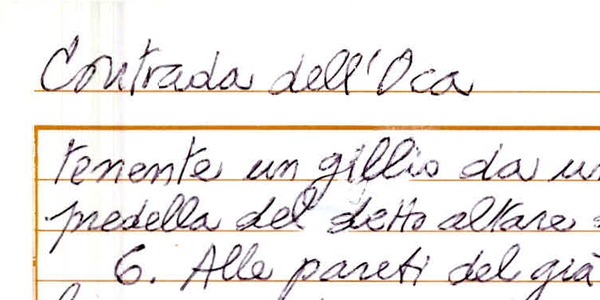 Contrada dell'Oca
tenente un gillio da
predella del detto altare
6. Alle pareti del già